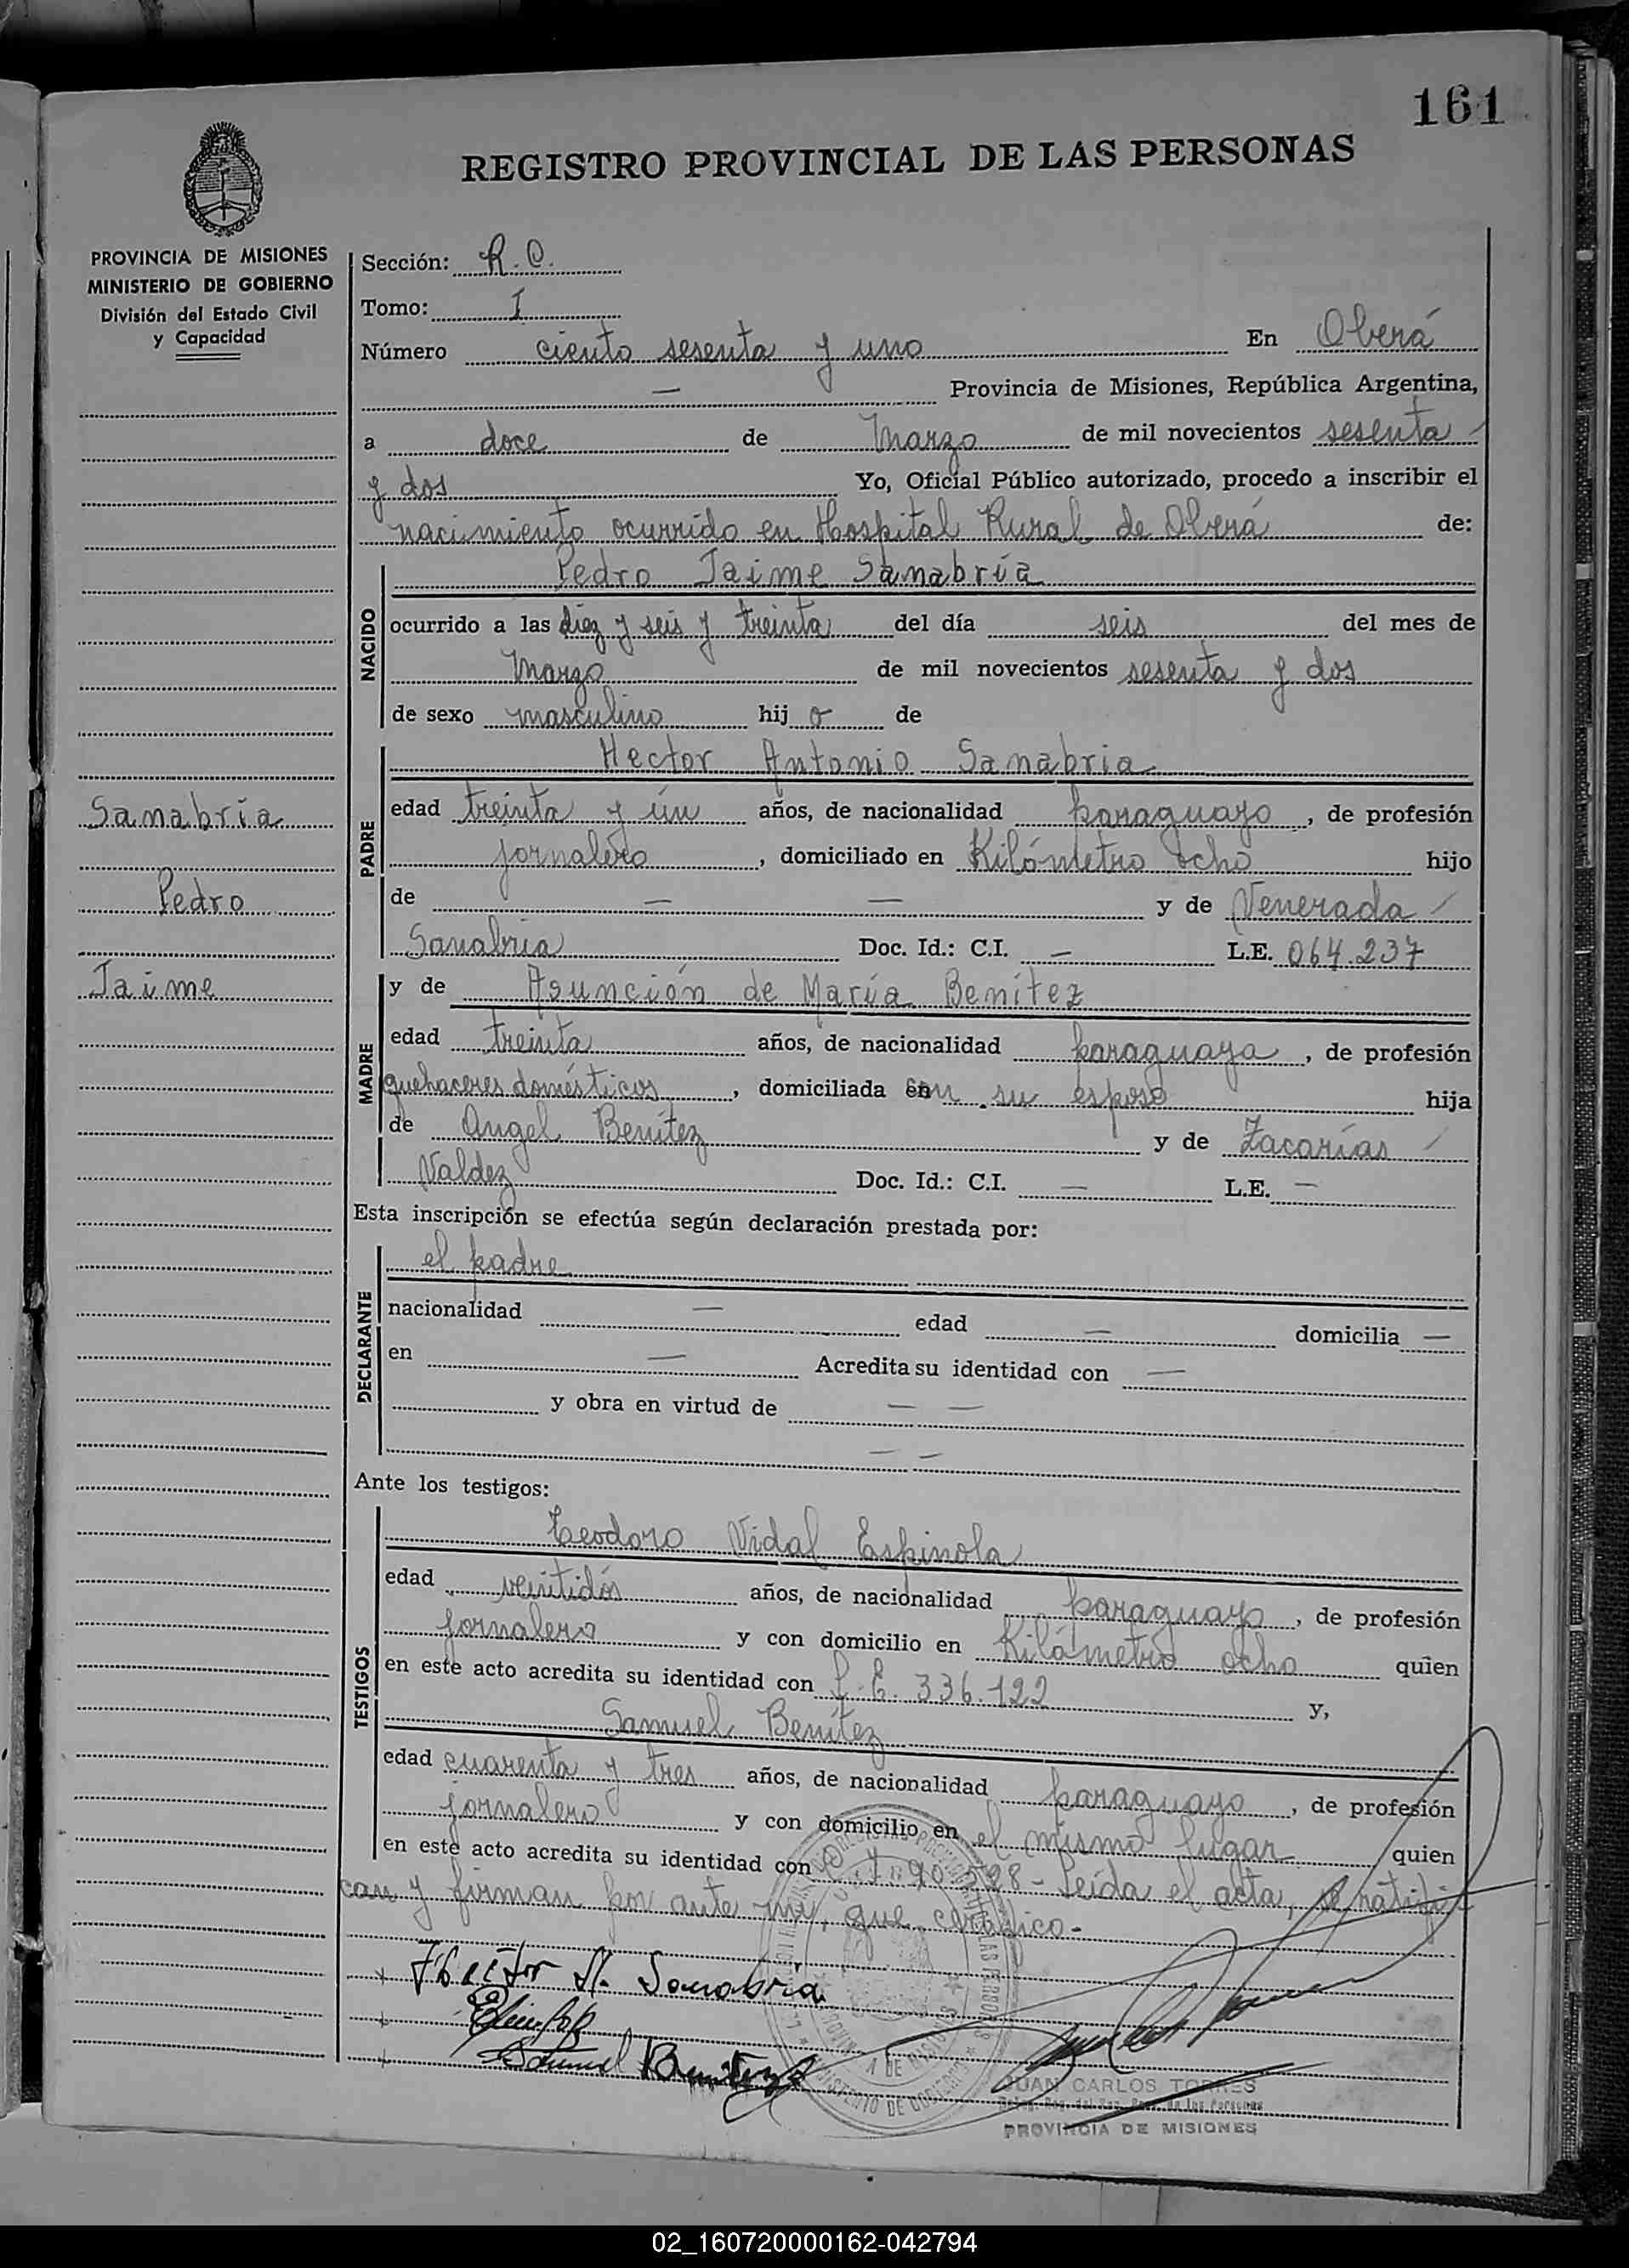 161
REGISTRO PROVINCIAL DE LAS PERSONAS
PROVINCIA DE MISIONES
MINISTERIO DE GOBIERNO
División del Estado Civil
y Capacidad
Sanabria
Pedro
Jaime
Sección: R.C.
Tomo: I
Número ciento sesenta y uno En Oberá
— Provincia de Misiones, República Argentina,
a doce de Marzo de mil novecientos sesenta
y dos Yo, Oficial Público autorizado, procedo a inscribir el
nacimiento ocurrido en Hospital Rural de Oberá de:
NACIDO
Pedro Jaime Sanabria
ocurrido a las diez y seis y treinta del día seis del mes de
Marzo de mil novecientos sesenta y dos
de sexo masculino hij o de
PADRE
Hector Antonio Sanabria
edad treinta y ún años, de nacionalidad paraguayo, de profesión
jornalero, domiciliado en Kilómetro ocho hijo
de — — y de Venerada
Sanabria Doc. Id.: C.I. — L.E. 064.237
MADRE
y de Asunción de María Benítez
edad treinta años, de nacionalidad paraguaya, de profesión
quehaceres domésticos, domiciliada con su esposo hija
de Angel Benítez y de Zacarías
Valdez Doc. Id.: C.I. — L.E. —
Esta inscripción se efectúa según declaración prestada por:
DECLARANTE
el padre
nacionalidad — edad — domicilia —
en — Acredita su identidad con —
y obra en virtud de — —
— —
Ante los testigos:
TESTIGOS
Teodoro Vidal Espinola
edad veintidós años, de nacionalidad paraguayo, de profesión
jornalero y con domicilio en Kilómetro ocho quien
en este acto acredita su identidad con L.E. 336.122 y,
Samuel Benítez
edad cuarenta y tres años, de nacionalidad paraguayo, de profesión
jornalero y con domicilio en el mismo lugar quien
en este acto acredita su identidad con - Leída el acta, se ratifi
can y firman por ante mí, que certifico.-
Hector A. Sanabria
Samuel Benitez
JUAN CARLOS TORRES
PROVINCIA DE MISIONES
02_160720000162-042794